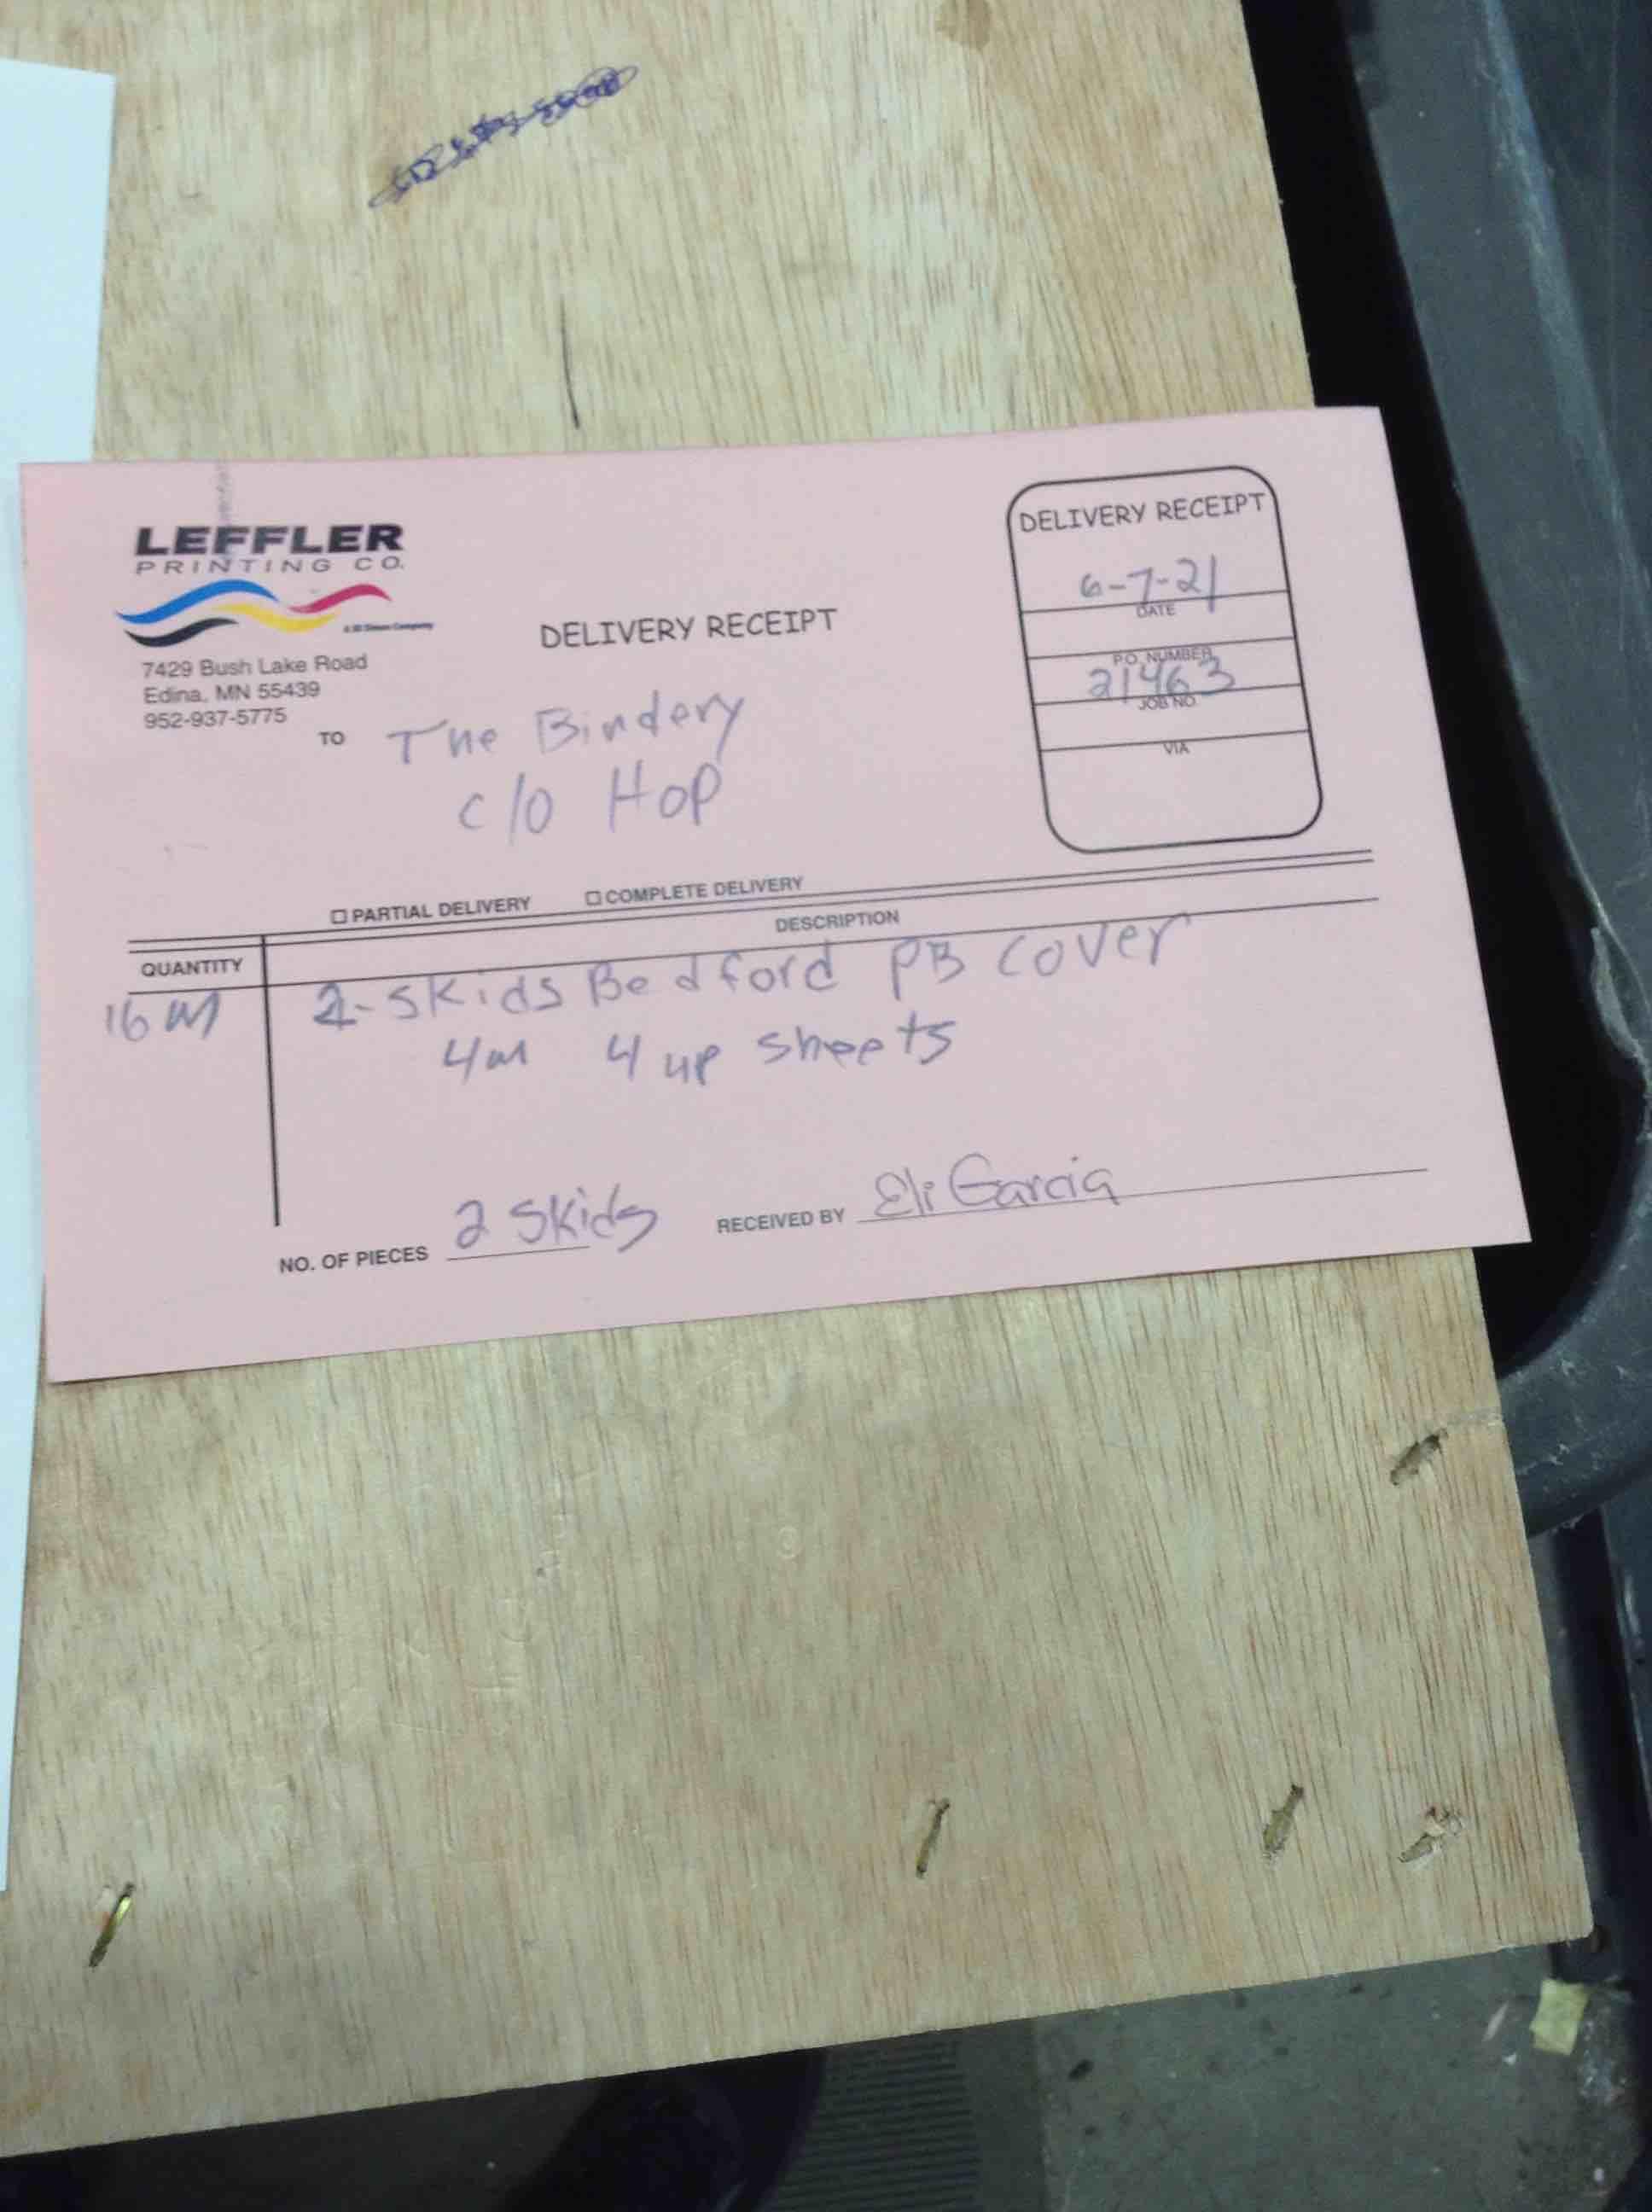 LEFFLER
PRINTING CO.
7429 Bush Lake Road
Edina, MN 55439
952-937-5775
DELIVERY RECEIPT
DELIVERY RECEIPT
6-7-21
DATE
P.O. NUMBER
21463
JOB NO.
VIA
TO The Bindery
c/o HOP
☐ PARTIAL DELIVERY ☐ COMPLETE DELIVERY
QUANTITY DESCRIPTION
16 M 2-Skids Bedford PB cover
4M 4 up sheets
NO. OF PIECES 2 Skids RECEIVED BY Eli Garcia